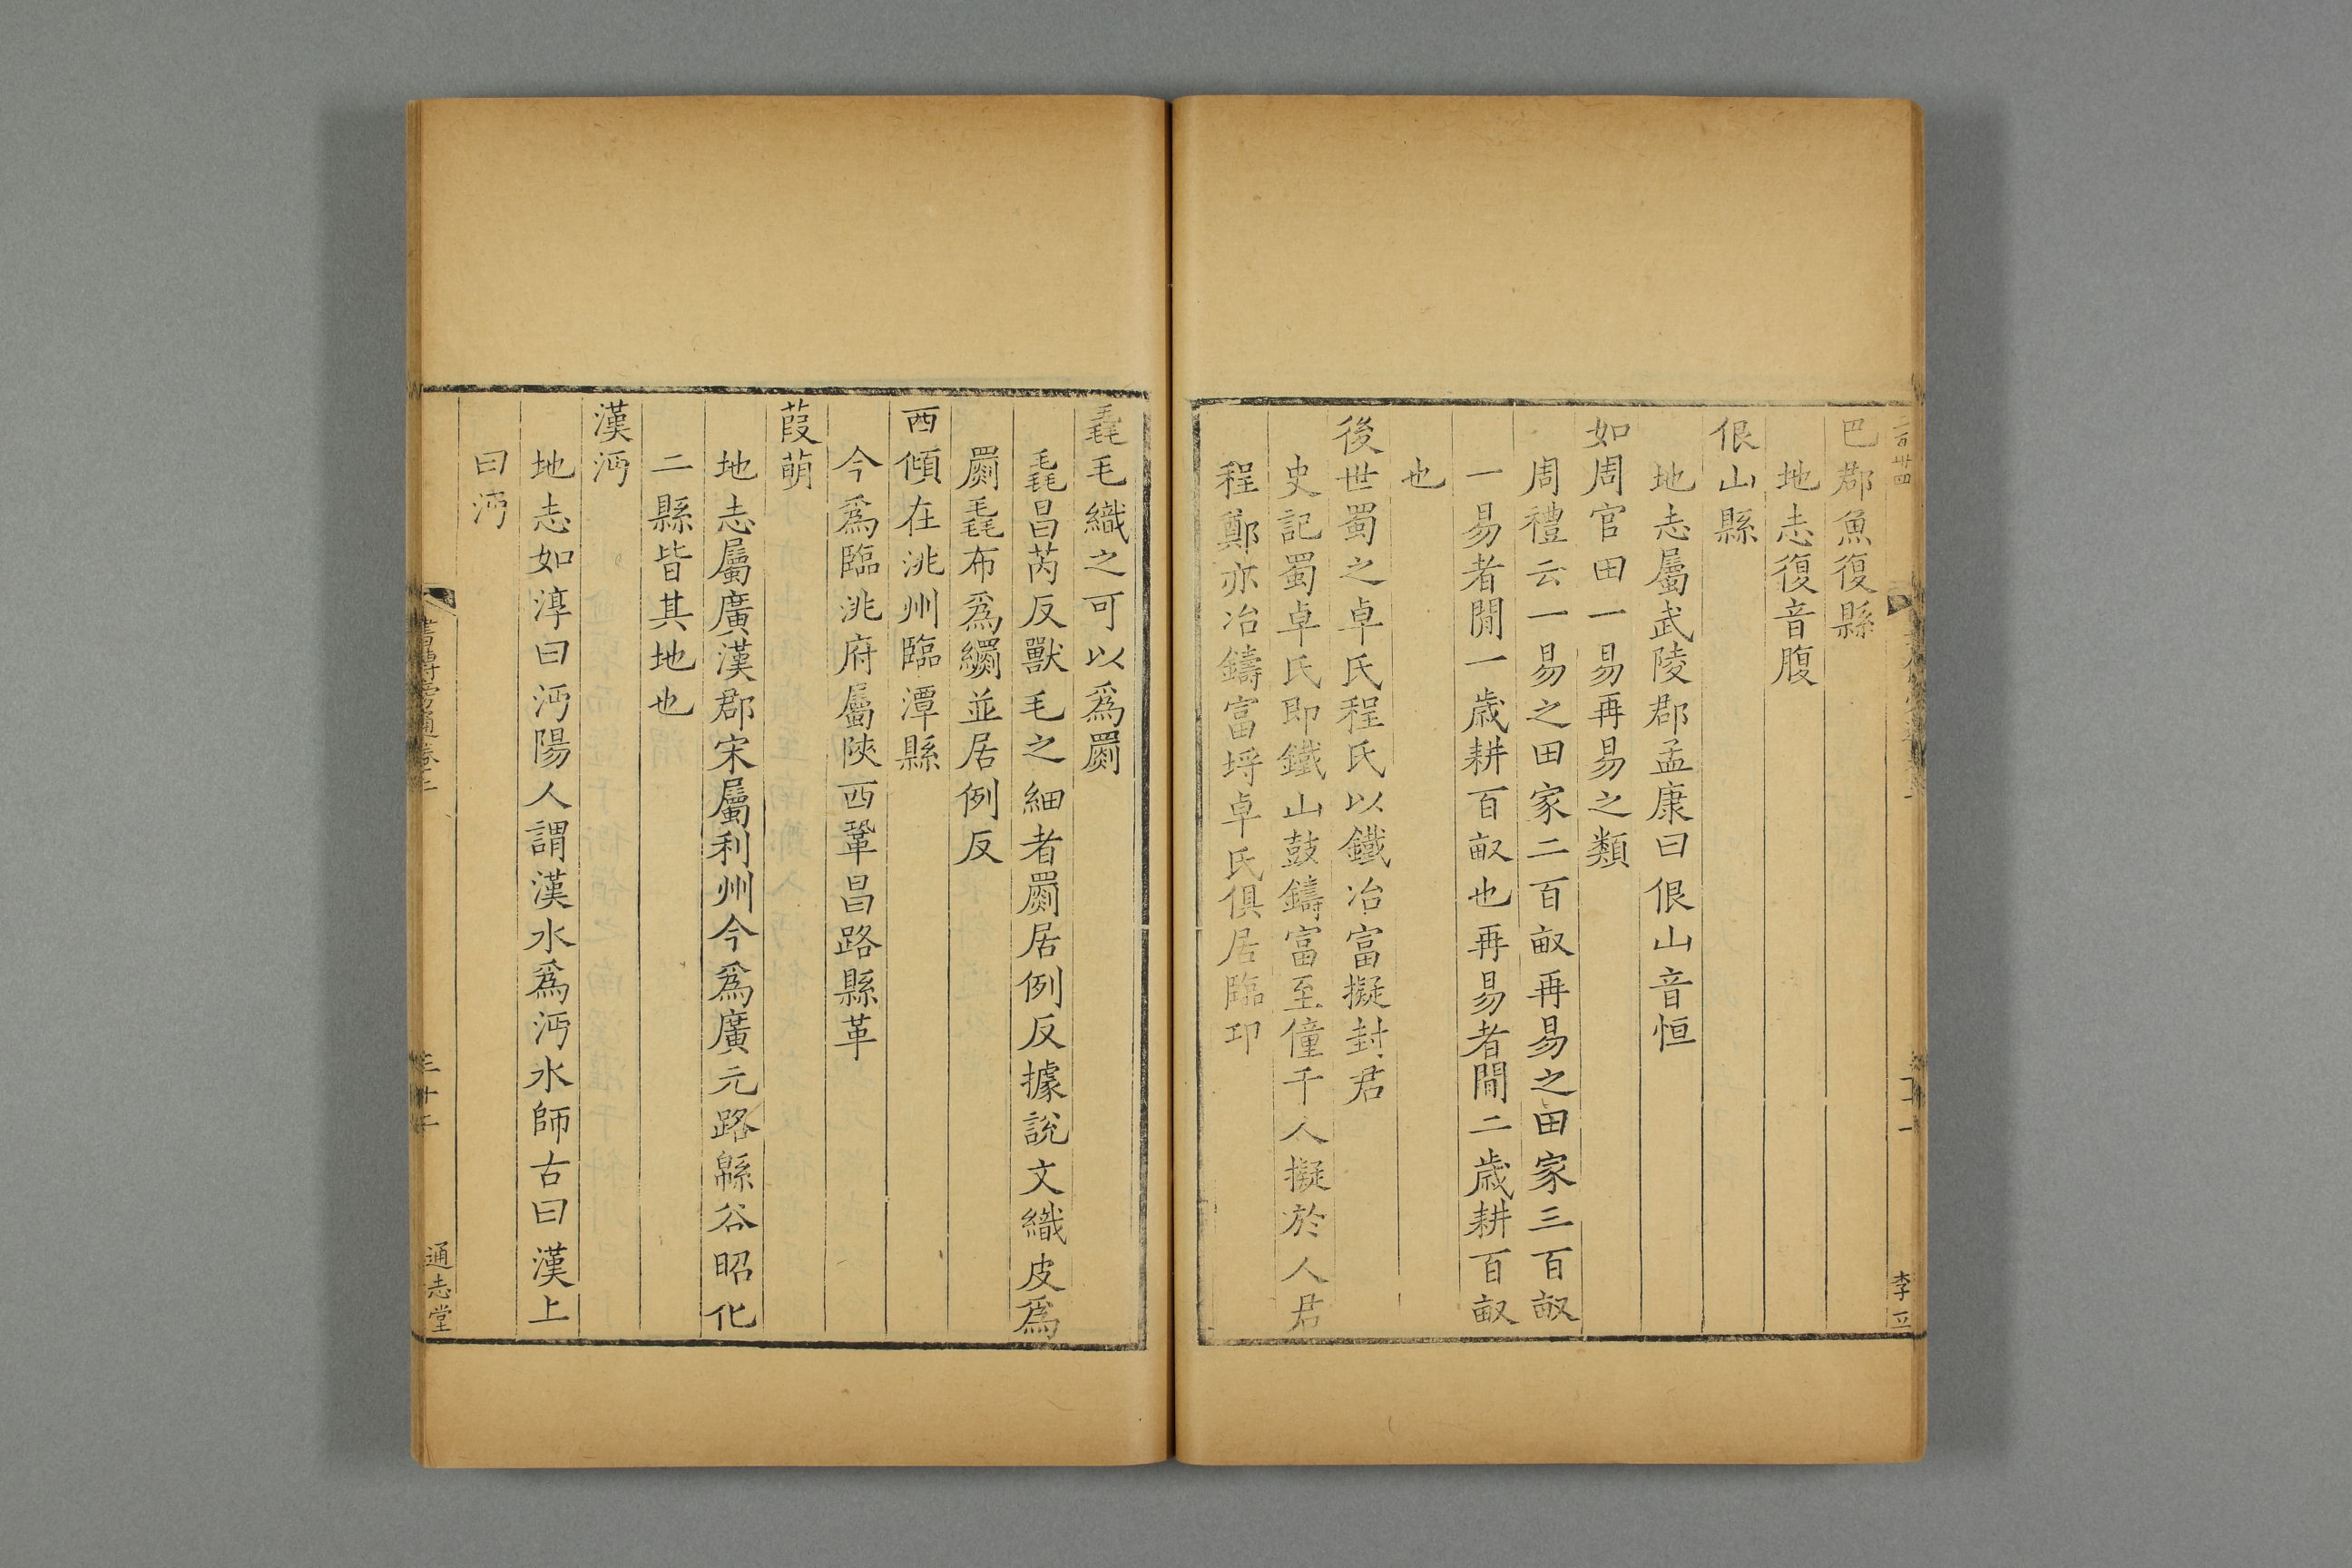 巴郡魚復縣
地志復音腹
佷山縣
地志屬武陵郡孟康曰佷山音恒
如周官田一易再易之類
周禮云一易之田家二百畝再易之田家三百畝
一易者閒一歲耕百畝也再易者閒二歲耕百畝
也
後世蜀之卓氏程氏以鐵冶富擬封君
史記蜀卓氏即鐵山鼓鑄富至僮千人擬於人君
程鄭亦冶鑄富埒卓氏俱居臨邛
李
毳毛織之可以為罽
毳昌芮反獸毛之細者罽居例反據說文織皮為
罽毳布為繝並居例反
西傾在洮州臨潭縣
今為臨洮府屬陝西鞏昌路縣革
葭萌
地志屬廣漢郡宋屬利州今為廣元路緜谷昭化
二縣皆其地也
漢沔
地志如淳曰沔陽人謂漢水為沔水師古曰漢上
曰沔
書傳旁通卷二
三十二
通志堂